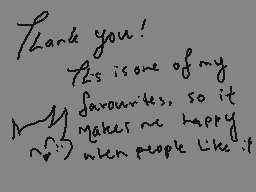 Thank you!
This is one of my
favourites, so it
makes me happy
when people like it